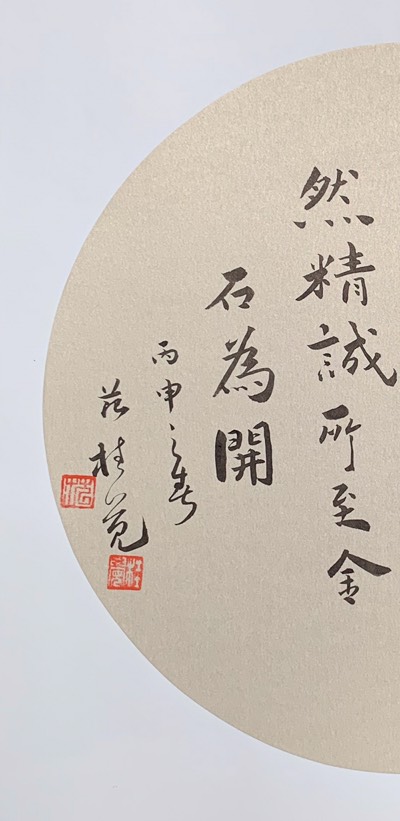 然精誠所至金
石為開
丙申之春
桂